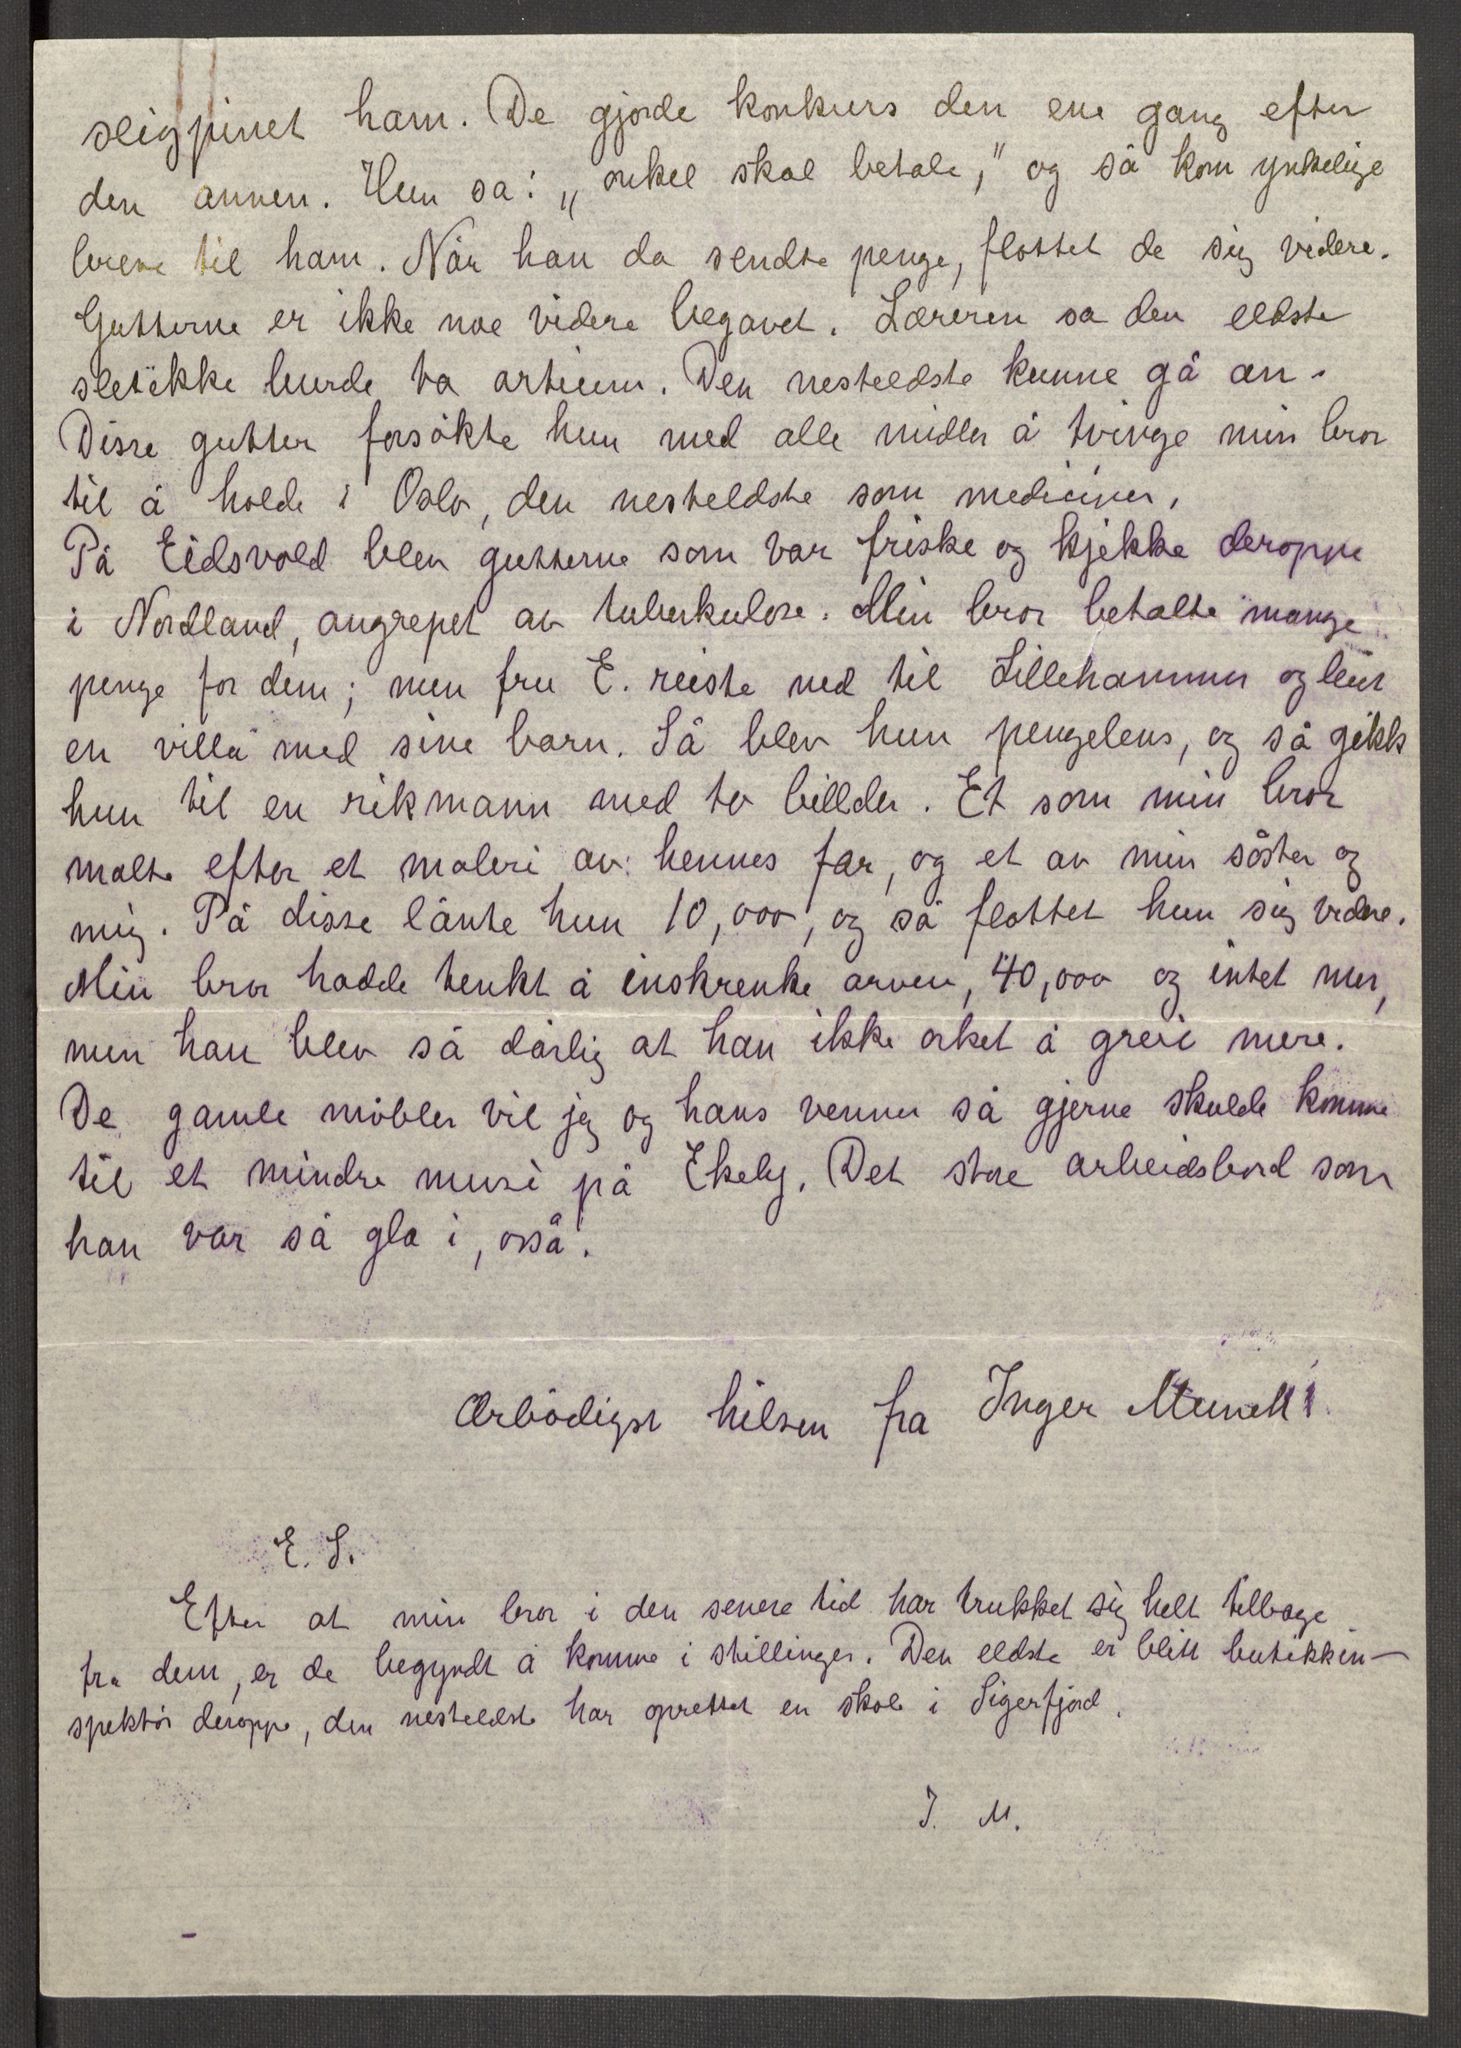 seigpinet ham. De gjorde konkurs den ene gang efter
den annen. Hun sa: „onkel skal betale," og så kom ynkelige
breve til ham. Når han da sendte penge, flottet de sig videre.
Gutterne er ikke noe videre begavet. Læreren sa den eldste
sletikke burde ta artium. Den nesteldste kunne gå an.
Disse gutter forsökte hun med alle midler å tvinge min bror
til å holde i Oslo, den nesteldste som mediciner.
På Eidsvold blev gutterne som var friske og kjekke deroppe
i Nordland, angrepet av tuberkulose. Min bror betalte mange
penge for dem; men fru E. reiste ned til Lillehammer og leiet
en villa med sine barn. Så blev hun pengelens, og så gikk
hun til en rikmann med to billder. Et som min bror
malte efter et maleri av hennes far, og et av min söster og
mig. På disse lånte hun 10,000, og så flottet hun sig videre.
Min bror hadde tenkt å inskrenke arven, 40,000 og intet mer,
men han blev så dårlig at han ikke orket å greie mere.
De gamle möbler vil jeg og hans venner så gjerne skulde komme
til et mindre muse på Ekely. Det store arbeidsbord som
han var så gla i, også.
Ærbödigst hilsen fra Inger Munch
E. S.
Efter at min bror i den senere tid har trukket sig helt tilbage
fra dem, er de begyndt å komme i stillinger. Den eldste er blitt butikkin-
spektör deroppe, den nesteldste har oprettet en skole i Sigerfjord.
I. M.